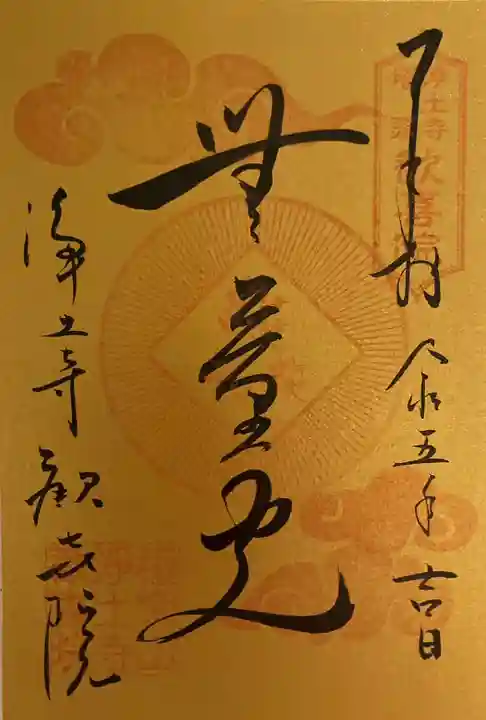 奉拝 令和五年 吉日
無量光
浄土寺 歓喜院
浄土寺
歓喜院